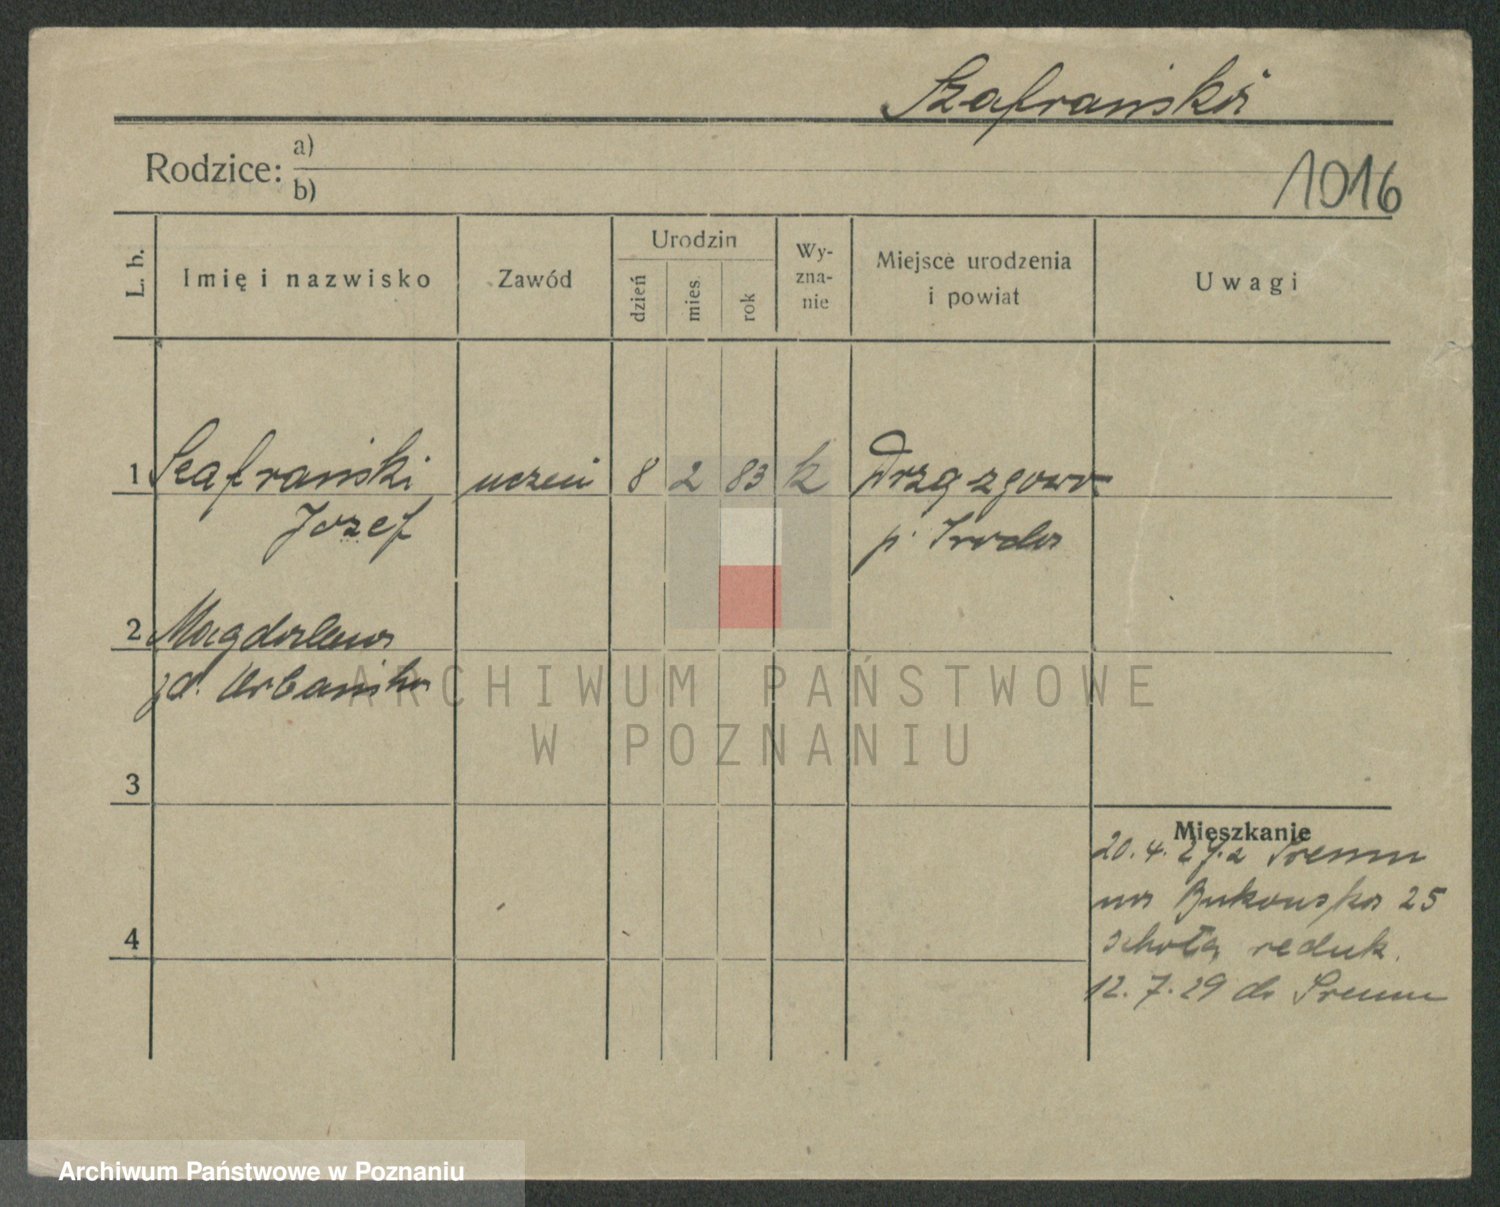 Szafrański
Rodzice: a)
b)
1016
L. b.
Imię i nazwisko
Zawód
Urodzin
dzień
mies
rok
Wy-
zna-
nie
Miejsce urodzenia
i powiat
Uwagi
1 Szafrański uczeń 8 2 83 k Drzązgowo
Józef p. Środa
2 Magdalena
zd. Urbańska
3
4
Mieszkanie
20. 4. 27. z Śremu
na Bukowska 25
szkoła reduk.
12. 7. 29 do Śremu
ARCHIWUM PAŃSTWOWE
W POZNANIU
Archiwum Państwowe w Poznaniu